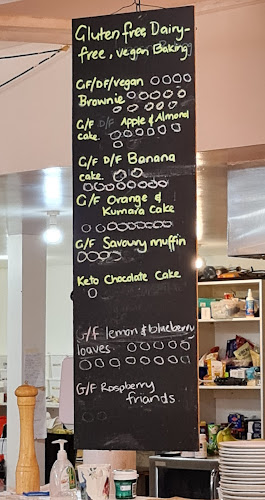 Gluten free, Dairy-
free, vegan Baking
GF/DF/vegan
Brownie
G/F D/F Apple & Almond
cake.
G/F D/F Banana
cake
G/F Orange &
Kumara Cake
G/F Savoury muffin
Keto Chocolate Cake
G/F lemon & blueberry
loaves.
G/F Raspberry
friands.